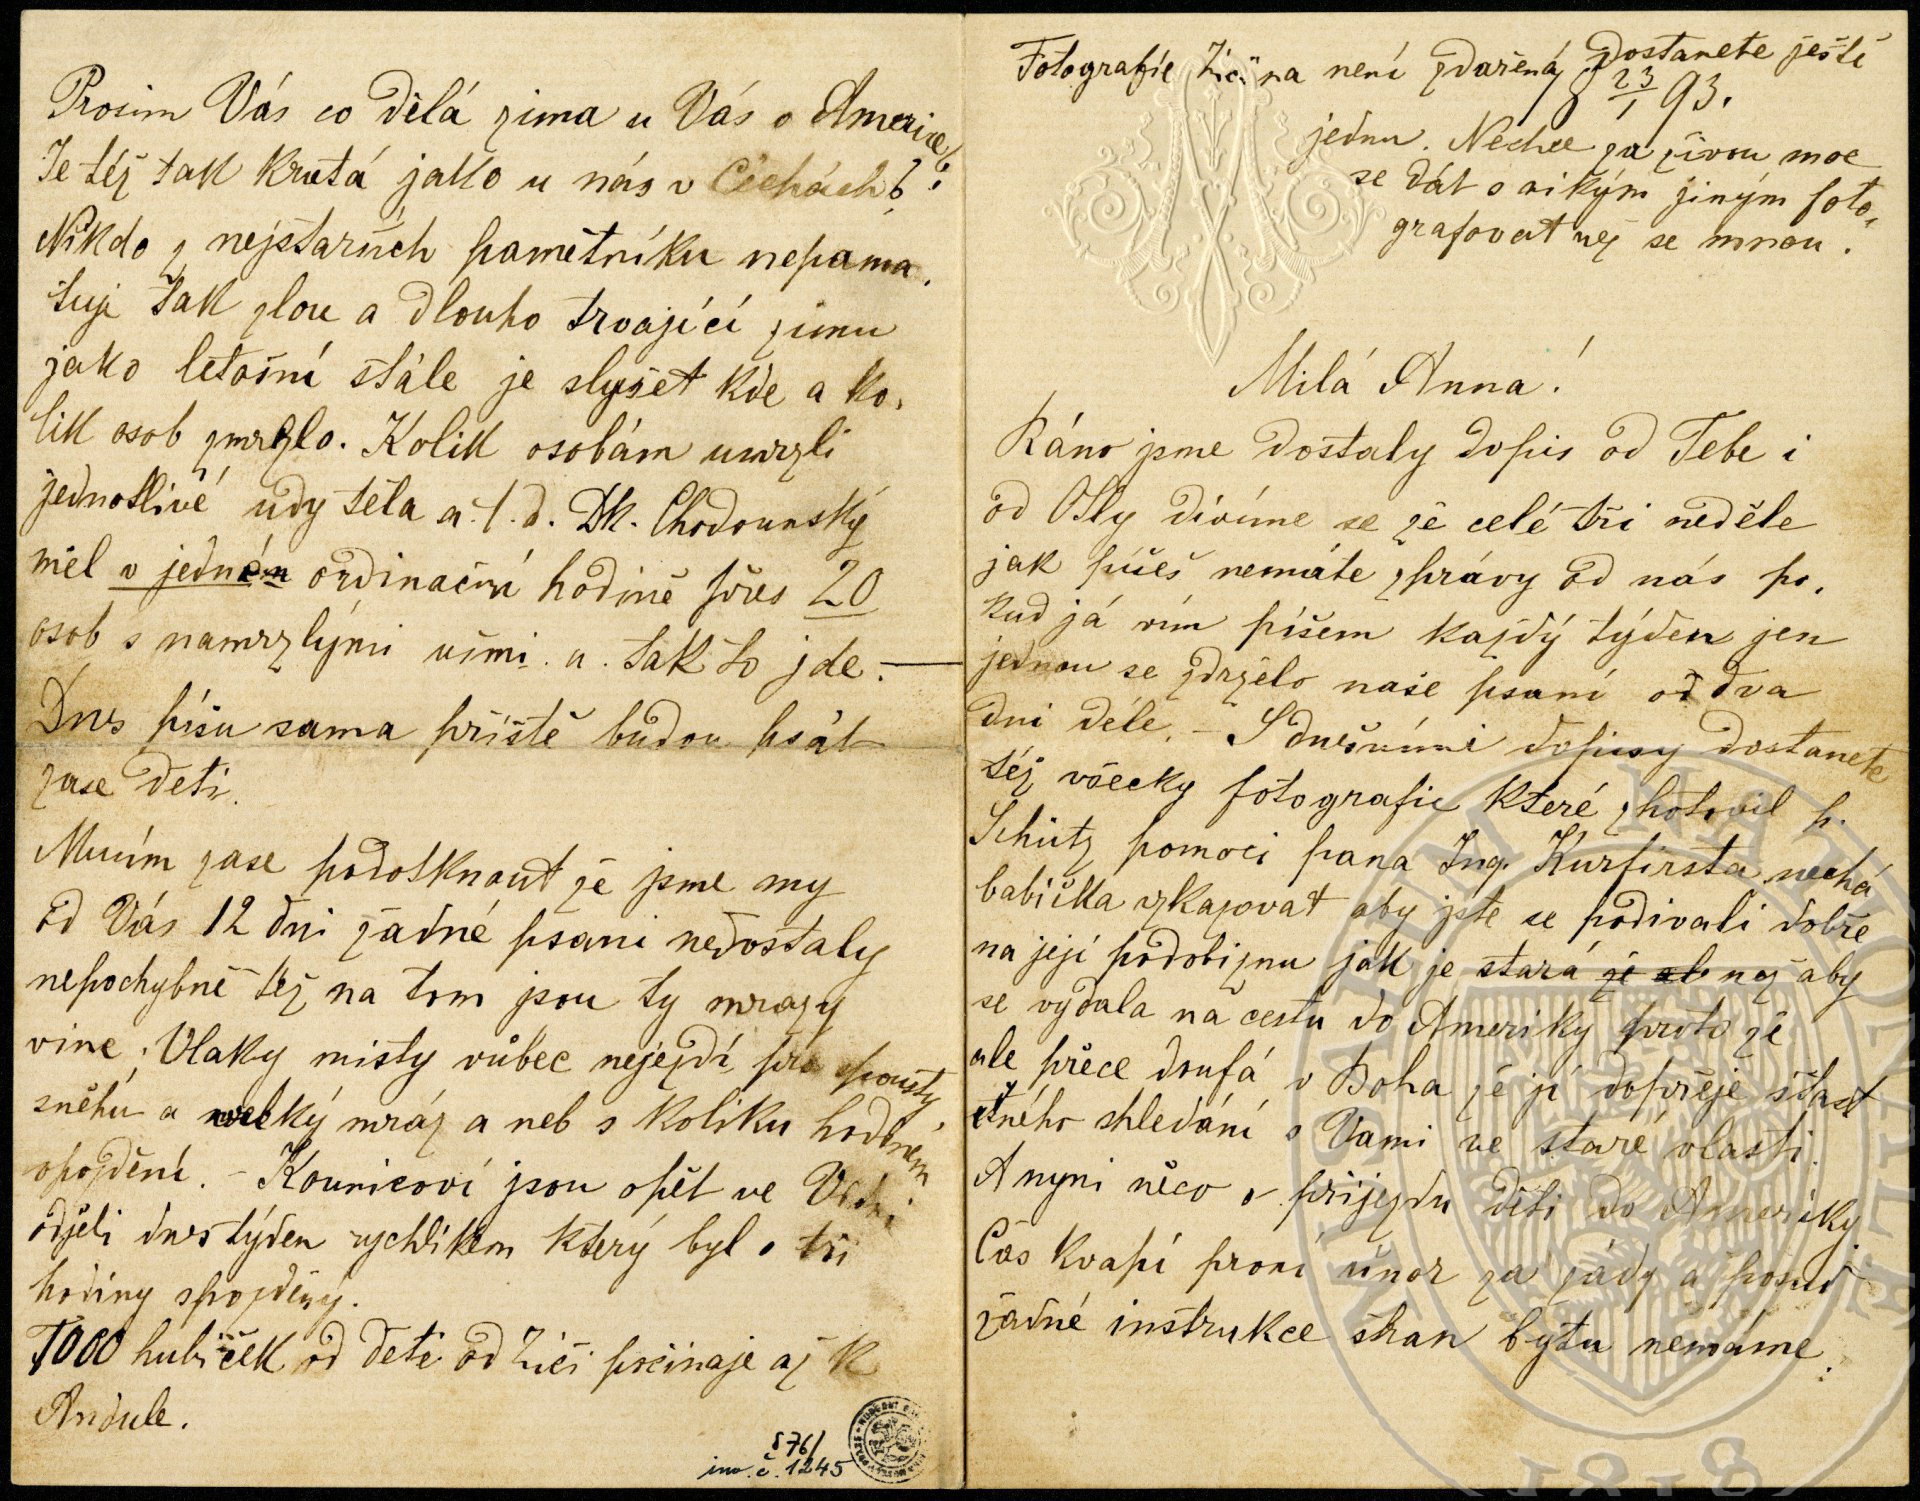 Fotografie Žičina není zdařená dostanete ještě
23/1 93.
jednu. Nechce za živou moc
se dát s nikým jiným foto-
grafovat než se mnou.
Milá Anna!
Ráno jsme dostaly dopis od Tebe i
od Olly divíme se že celé tři neděle
jak píšeš nemáte zprávy od nás po-
kud já vím píšem každý týden jen
jednou se zdrželo naše psaní o dva
dni déle. – S dnešními dopisy dostanete
též všecky fotografie které zhotovil p.
Schütz pomocí pana Ing. Kurfirsta nechá
babička vzkazovat aby jste se podivali dobře
na její podobiznu jak je stará než aby
se vydala na cestu do Ameriky proto že
ale přece doufá v Boha že jí dopřeje šťast
ného shledání s Vami ve staré vlasti.
A nyni něco o příjezdu dětí do Ameriky
Čas kvapí první únor za zády a posud
žadné instrukce stran bytu nemáme.
Prosim Vás co dělá zima u Vás v Americe?
Je též tak krutá jako u nás v Čechách?
Nikdo z nejstarších pamětníku nepama-
tuje tak zlou a dlouho trvající zimu
jako letošní stále je slyšet kde a ko-
lik osob zmrzlo. Kolik osobám umrzli
jednotlivé udy těla a.t.d. Dr. Chodounský
měl v jedném ordinační hodině přes 20
osob s namrzlými ušimi a tak to jde. —
Dnes píšu sama příště budou psát
zase děti.
Musím zase podotknout že jsme my
od Vás 12 dni žádné psani nedostaly
nepochybně též na tom jsou ty mrazy
vine. Vlaky misty vůbec nejezdí pro spousty
sněhu a velký mráz a neb s kolika hodiném
opozdění. – Kounicovi jsou opět ve Vídni
odjeli dnes týden rychlíkem který byl o tři
hodiny spozděny.
1000 hubiček od děti od Žiči počinaje až k
Andule.
§76/
inv. č. 1245
MUSAEUM NATIONALE
1818